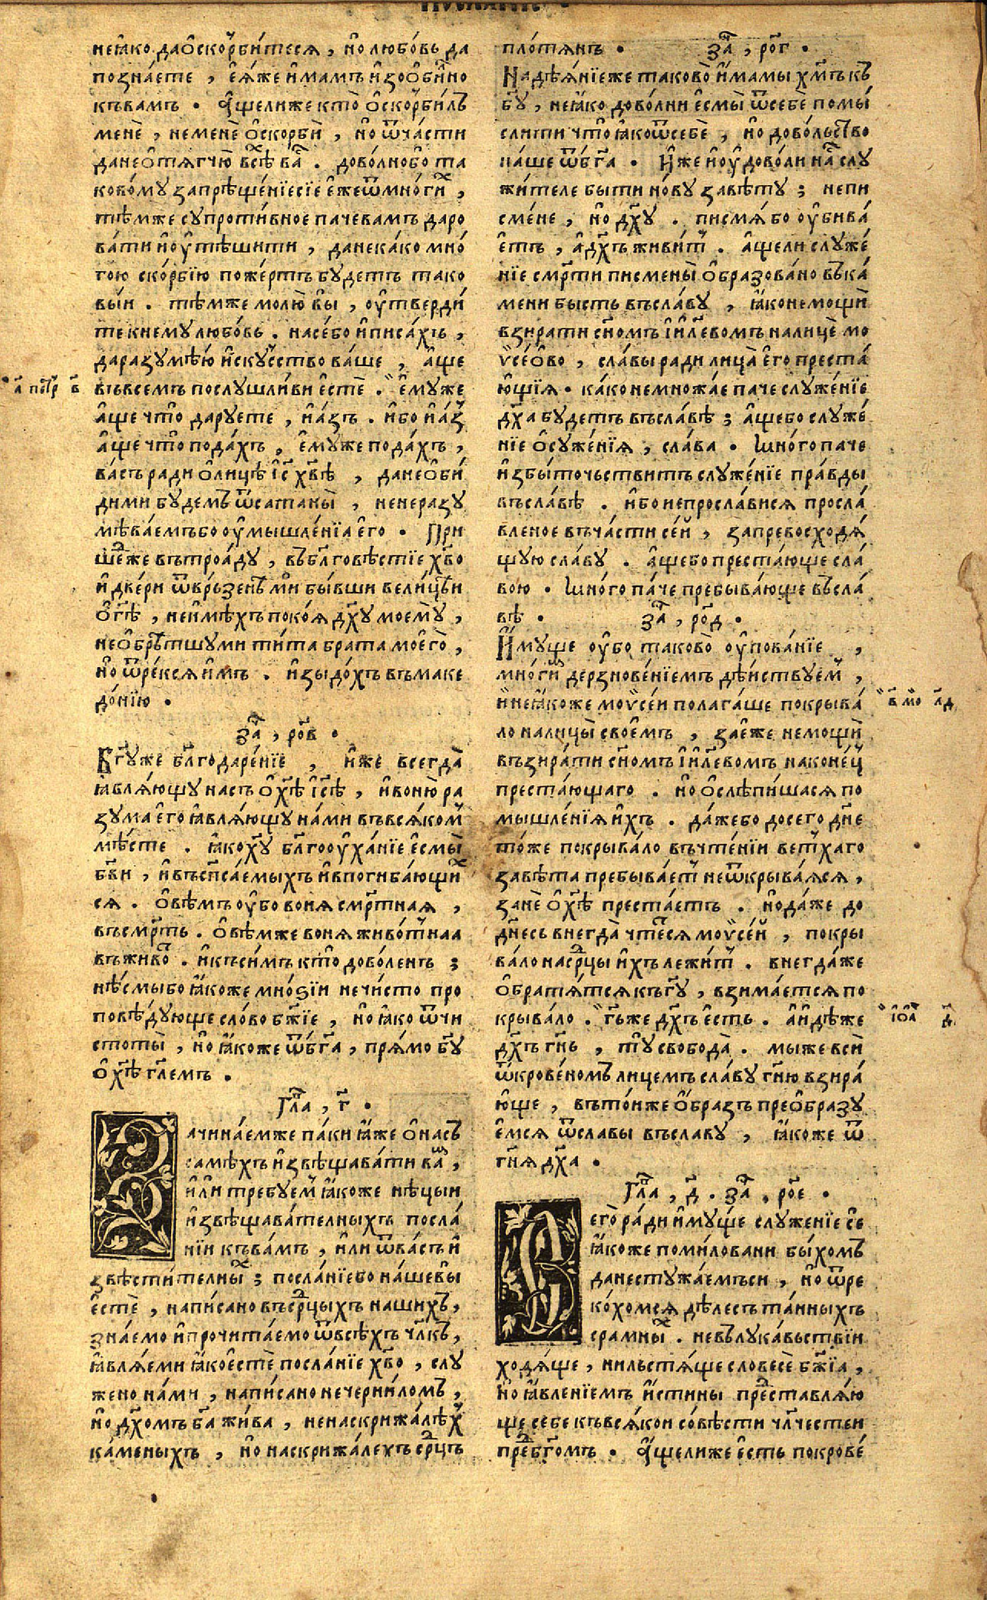 неꙗ҆ко даѻ҆скорби́теся , но҆ любо́вь да
позна́ете , е҆я́же и҆мамъ и҆зоѻби́лно
къвамъ . А҆щелиже кто̀ ѻ҆скорби́лъ
менѐ , неменѐ ѻ҆скорбѝ , но҆ ѿча́сти
данеѻ҆тягчю̀ всѣ̀ ва́с . дово́лнобо та
ково́му запрѣще́нїесїе е҆жеѿмно́гих ,
тѣ́мже супроти́вное пачевамъ даро
ва́ти и҆оу҆тѣ́шити , данека́ко мно́
гою ско́рбїю поже́ртъ бу́детъ тако
вы́и . тѣ́мже молю̀ вы̀ , оу҆тверди́
те кнему любо́вь . насе́бо и҆писа́хъ ,
даразумѣ́ю и҆ску́сство ва́ше , а҆ще
въвсемъ послушли́ви е҆стѐ . е҆му́же
а҆ще что̀ да́руете , и҆а҆зъ . и҆бо и҆а҆з
а҆ще что̀ пода́хъ , е҆му́же пода́хъ ,
васъ ра́ди ѻ҆лицѣ̀ і҆с хв҃ѣ , данеѻ҆би́
дими бу́демъ ѿсатаны̀ , ненеразу
мѣва́емъбо оу҆мышле́нїа е҆го̀ . При
ше́дже вътроа́ду , въбл҃говѣ́стїе хв҃о
и҆ две́ри ѿврьзенѣ̀ ми бы́вши вели́цѣи
ѻ҆г҃ѣ , неи҆мѣ́хъ поко́я дх҃у моему̀ ,
неѻ҆брѣ́тшуми ти́та бра́та моего̀ ,
но҆ ѿре́кся и҆мъ . и҆зыдо́хъ въмаке
до́нїю .
За҄ , ро҃в .
Бг҃уже бл҃годаре́нїе , и҆же всегда̀
ꙗ҆вля́ющу насъ ѻ҆хс҃ѣ і҆с҃ѣ , и҆во́ню ра
зума е҆го ꙗ҆вля́ющу на́ми въвся́ком
мѣ́сте . ꙗ҆кохс҃у бл҃гооу҆ха́нїе е҆смы̀
бг҃ви , и҆въспс҃а́емыхъ и҆впогиба́ющих
ся . ѻ҆вѣ́мъ оу҆бо воня̀ см҃ртная ,
въсм҃рть . ѻ҆вѣ́мже воня̀ живо́тнаа
въживо́т . и҆ксимъ кто̀ дово́ленъ ;
нѣ́смыбо ꙗ҆коже мно́ѕїи нечи́сто про
повѣ́дующе сло́во бж҃їе , но҆ ꙗ҆ко ѿчи
стоты̀ , но҆ ꙗ҆коже ѿбг҃а , пря́мо бг҃у
ѻ҆хс҃ѣ гл҃емъ .
Гла҄ , г҃ .
Зачина́емже па́ки ꙗ҆́же ѻ҆на́съ
самѣ́хъ и҆звѣщава́ти вам ,
и҆ли̇̀ тре́буем ꙗ҆коже нѣ́цыи
и҆звѣщава́телныхъ посла́
нїи къва́мъ , и҆ли ѿва́съ и҆
звѣсти́телных ; посла́нїебо на́шевы̀
е҆стѐ , напи́сано въсрд҃цыхъ на́шихъ ,
зна́емо и҆прочита́емо ѿвсѣ́хъ чл҃къ ,
ꙗ҆вля́еми ꙗ҆кое҆стѐ посла́нїе хв҃о , слу
жено на́ми , напи́сано нечерни́ломъ ,
но҆ дх҃омъ ба҃ жи́ва , ненаскрижа́лѣх
ка́меныхъ , но҆ наскрижа́лехъ срд҃цъ
пло́тянъ . За҄ , ро҃г .
Надѣ́янїеже таково̀ и҆мамы хс҃мъ къ
бг҃у , неꙗ҆ко дово́лни е҆смы̀ ѿсебѐ помы́
слити что̀ ꙗ҆коѿсебѐ , но҆ дово́льство
на́ше ѿбг҃а . И҆же и҆оу҆дово́ли на́с слу
жи́теле бы́ти но́ву заве́ту ; непи
смене , но҆ дх҃у . писмя́бо оу҆бива́
етъ , а҆дх҃ъ живи́т . а҆щели служе́
нїе см҃рти писмены̀ ѻ҆бразова́но въка́
мени бысть въсла́ву , ꙗ҆конемощѝ
взира́ти сн҃омъ і҆и҃левомъ налицѐ мо
ѵсе́ѻво , сла́вы ра́ди лица̀ е҆го̀ преста́
ю҆щїя . ка́ко немно́жае па́че служе́нїе
дх҃а бу́детъ въсла́вѣ ; а҆щебо служе́
нїе ѻ҆суже́нїя , сла́ва . Мно́го па́че
и҆збы́точьствитъ служе́нїе пра́вды
въсла́вѣ . и҆бо непросла́вися просла́
вленое въча́сти се́й , запревосходя́
щую сла́ву . а҆щебо преста́юще сла́
вою . Мно́го па́че пребыва́юще въсла́
вѣ . За҄ , ро҃д .
И҆му́ще оу҆бо таково̀ оу҆пова́нїе ,
мно́гим дерзнове́нїемъ дѣ́йствуем ,
и҆неꙗ҆коже моѵсе́и полага́ше покрыва́
ло налицы̀ своемъ , зае҆же немощѝ
възира́ти сн҃омъ і҆и҃левомъ наконе́ц
преста́ющаго . но҆ ѻ҆слѣпи́шася по
мышле́нїя и҆хъ . да́жебо досего̀ дн҃е
то́же покрыва́ло въчте́нїи ве́тхаго
заве́та пребыва́ет неѿкрыва́яся ,
занѐ ѻ҆хс҃ѣ престаетъ . но҆да́же до
дн҃есь внегда̀ чте́тся моѵсе́й , покры
ва́ло насрд҃цы и҆хъ лежи́т . внегда́же
ѻ҆братя́тся къгд҃у , взима́ется по
крыва́ло . гд҃ьже дх҃ъ е҆сть . а҆и҆дѣ́же
дх҃ъ гд҃нь , ту̀ свобода̀ . мы́же всѝ
ѿкрове́номъ лице́мъ сла́ву гд҃ню взира́
юще , въто́иже ѻ҆́бразъ преѻ҆бразу́
емся ѿсла́вы въсла́ву , ꙗ҆коже ѿ
гд҃ня дх҃а .
Гла҄ , д҃ . За҄ , ро҃е .
Сего̀ ра́ди и҆му́ще служе́нїе сѐ
ꙗ҆коже поми́ловани бы́хомъ
данестужа́емъси , но҆ ѿре
ко́хомся дѣ́лесъ та́нныхъ
сра́мных . невълука́вьствїи
ходя́ще , нильстя́ще словесѐ бж҃їа ,
но҆ ꙗ҆вле́нїемъ и҆́стины преставля́ю
ще себе къвся́кои со́вѣсти чл҃честѣи
пред бг҃омъ . А҆щелиже е҆сть покрове́